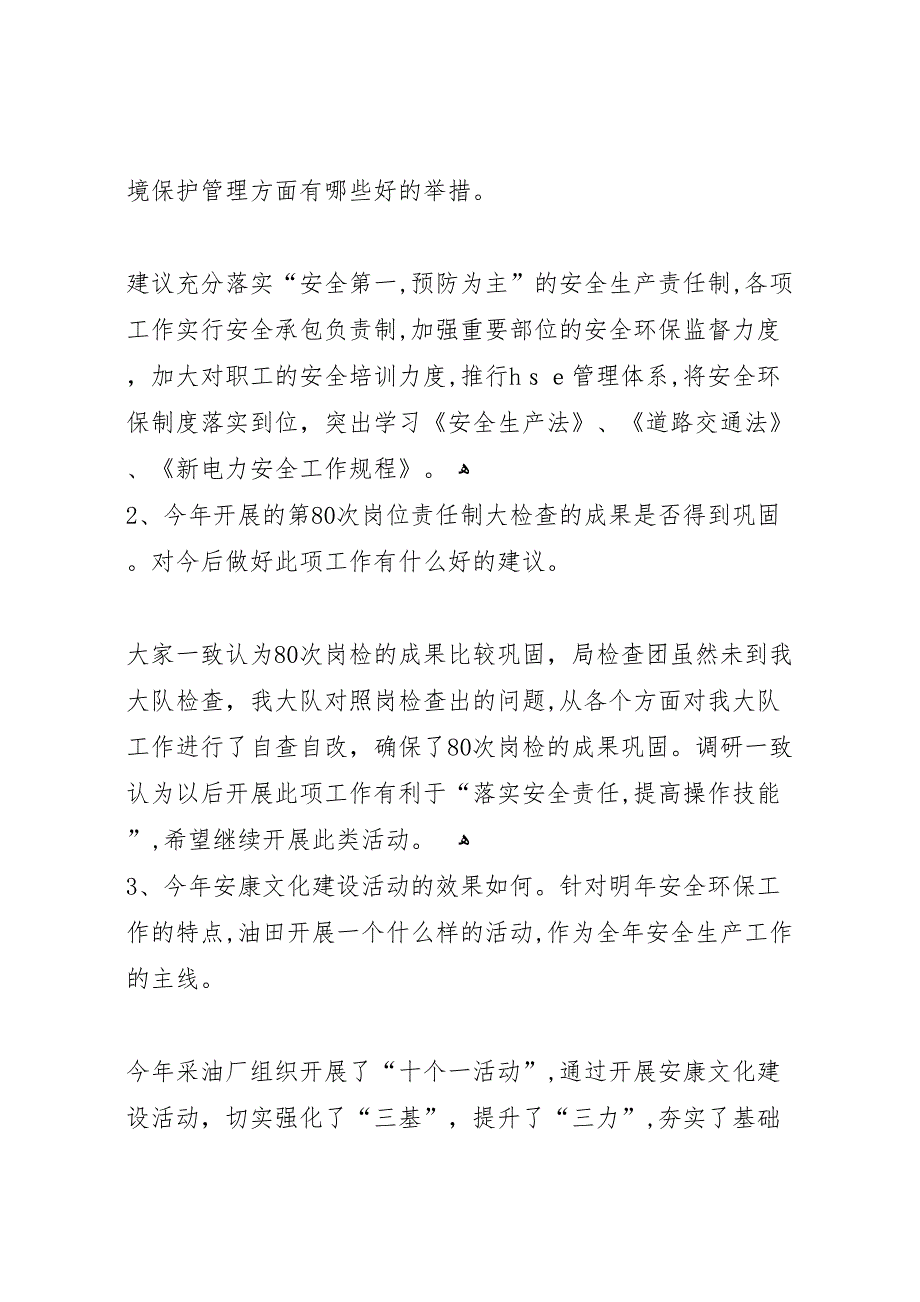 境保护管理方面有哪些好的举措。
建议充分落实“安全第一,预防为主”的安全生产责任制,各项
工作实行安全承包负责制,加强重要部位的安全环保监督力度
，加大对职工的安全培训力度,推行hse管理体系,将安全环
保制度落实到位，突出学习《安全生产法》、《道路交通法》
、《新电力安全工作规程》。 ﻫ
2、今年开展的第80次岗位责任制大检查的成果是否得到巩固
。对今后做好此项工作有什么好的建议。
大家一致认为80次岗检的成果比较巩固，局检查团虽然未到我
大队检查，我大队对照岗检查出的问题,从各个方面对我大队
工作进行了自查自改，确保了80次岗检的成果巩固。调研一致
认为以后开展此项工作有利于“落实安全责任,提高操作技能
”,希望继续开展此类活动。 ﻫ
3、今年安康文化建设活动的效果如何。针对明年安全环保工
作的特点,油田开展一个什么样的活动,作为全年安全生产工作
的主线。
今年采油厂组织开展了“十个一活动”,通过开展安康文化建
设活动，切实强化了“三基”，提升了“三力”,夯实了基础